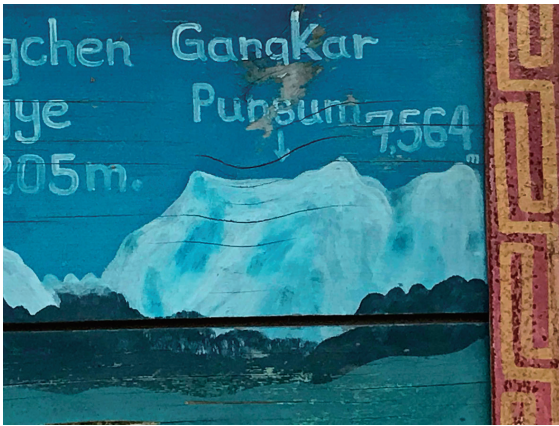 gchen
gye
205m.
Gangkar
Punsum 7,564
m